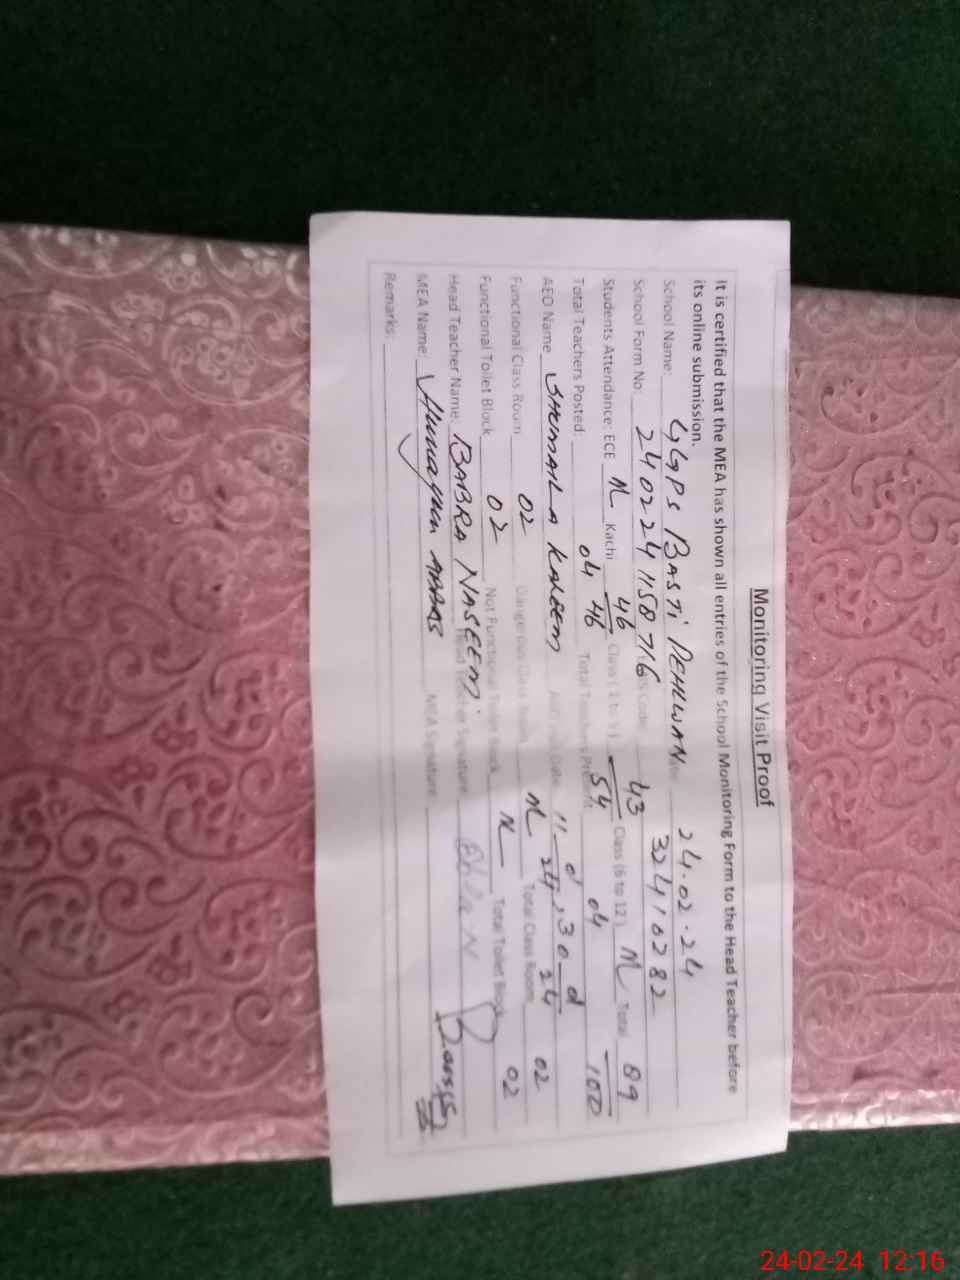 Monitoring Visit Proof
It is certified that the MEA has shown all entries of the School Monitoring Form to the Head Teacher before
its online submission.
School Name: GGPS BASTI PEHLWAN 24.02.24
School Form No: 2402241158716 32410282
Students Attendance: ECE N Kachi 46/46 Class (1 to 5) 43/54 Class (6 to 12) N Total 89/100
Total Teachers Posted: 04 Total Teachers Present 04
AEO Name SHUMAILA KALEEM
Functional Class Room 02 Dangerous Class Room N Total Class Room 02
Functional Toilet Block 02 Not Functional Toilet Block N Total Toilet Block 02
Head Teacher Name: BABRA NASEEM Head Teacher Signature
MEA Name: Humayun ABBAS MEA Signature
Remarks:
24-02-24 12:16